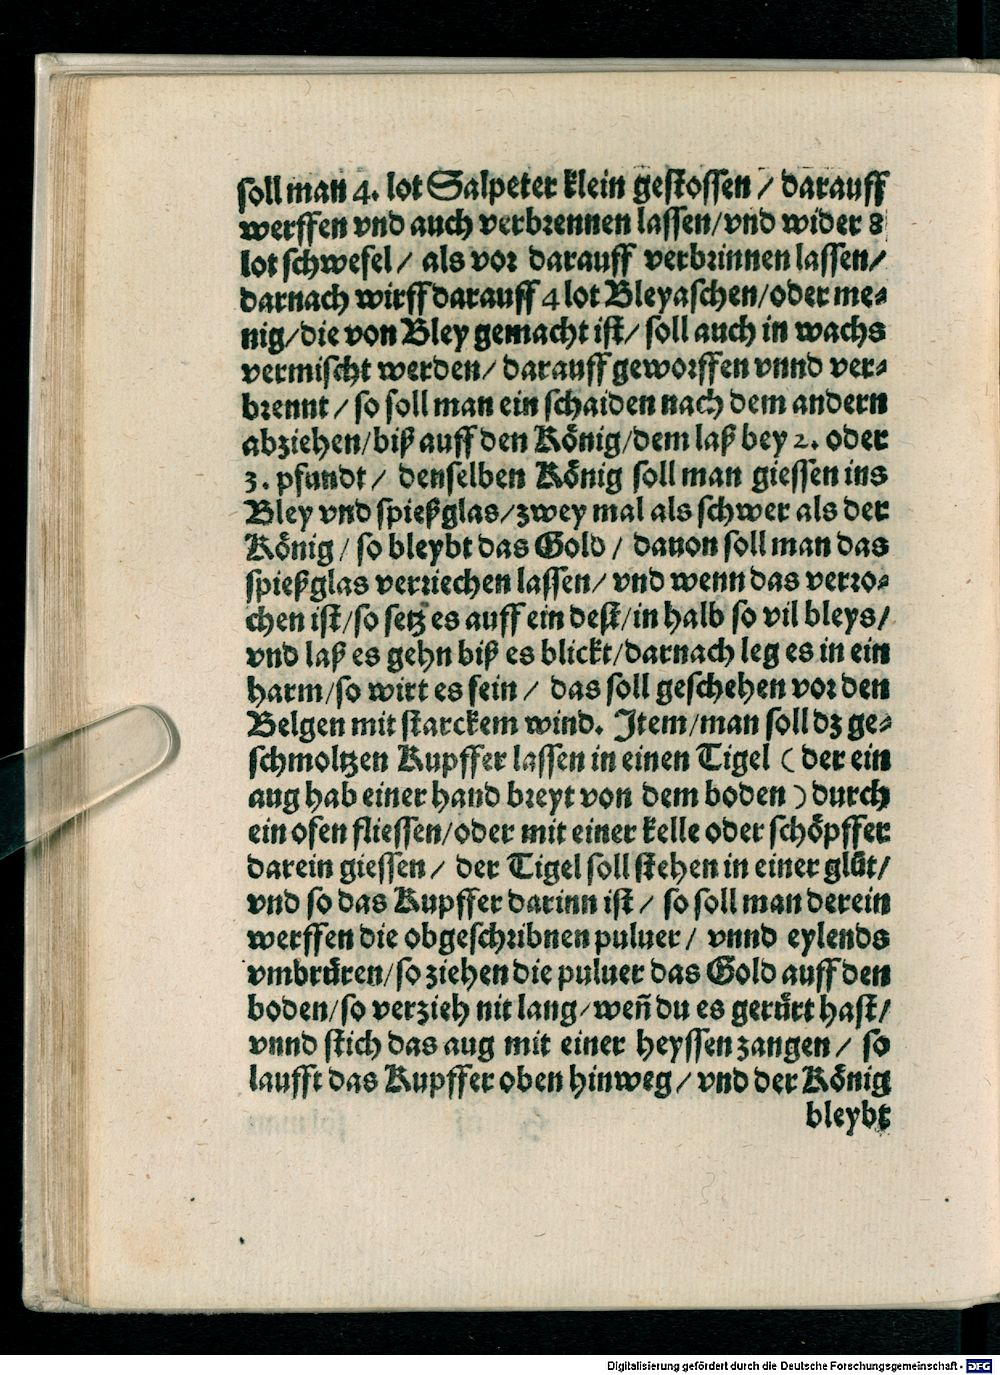 soll man 4. lot Salpeter klein gestossen / darauff
werffen vnd auch verbrennen lassen/vnd wider 8
lot schwefel/ als vor darauff verbrinnen lassen/
darnach wirff darauff 4 lot Bleyaschen/oder me-
nig/die von Bley gemacht ist/ soll auch in wachs
vermischt werden/ darauff geworffen vnnd ver-
brennt / so soll man ein schaiden nach dem andern
abziehen/biß auff den König/dem laß bey 2. oder
3. pfundt / denselben König soll man giessen ins
Bley vnd spießglas/zwey mal als schwer als der
König / so bleybt das Gold / dauon soll man das
spießglas verriechen lassen/ vnd wenn das verro-
chen ist/so setz es auff ein dest/in halb so vil bleys/
vnd laß es gehn biß es blickt/darnach leg es in ein
harm/so wirt es fein / das soll geschehen vor den
Belgen mit starckem wind. Item/man soll dz ge-
schmoltzen Kupffer lassen in einen Tigel ( der ein
aug hab einer hand breyt von dem boden ) durch
ein ofen fliessen/oder mit einer kelle oder schöpffer
darein giessen / der Tigel soll stehen in einer glůt/
vnd so das Kupffer darinn ist / so soll man derein
werffen die obgeschribnen puluer/ vnnd eylends
vmbrůren/so ziehen die puluer das Gold auff den
boden/so verzieh nit lang/weñ du es gerůrt hast/
vnnd stich das aug mit einer heyssen zangen / so
laufft das Kupffer oben hinweg/vnd der König
bleybt
Digitalisierung gefördert durch die Deutsche Forschungsgemeinschaft - DFG